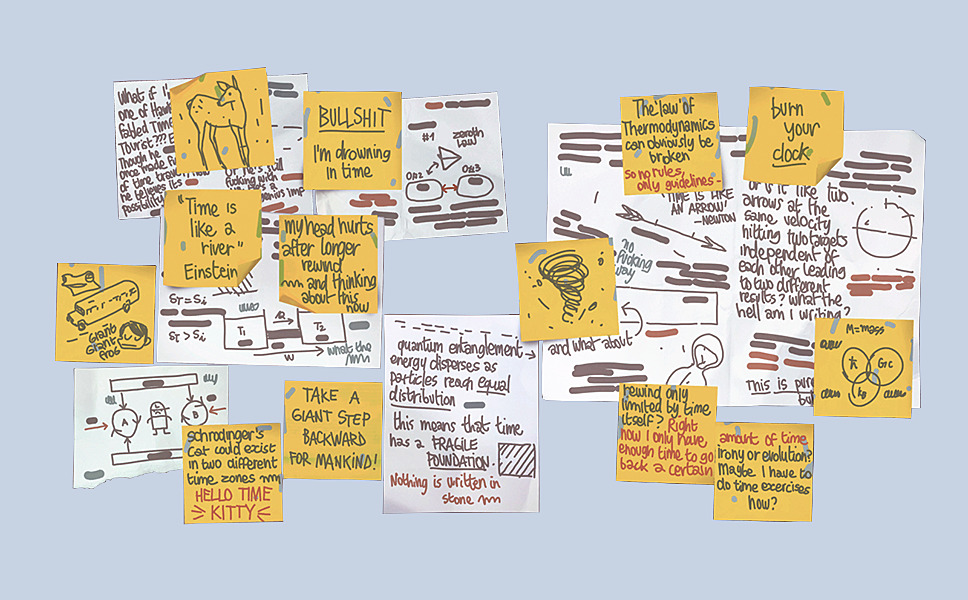 What if I'
one of Haw
fabled TIME
Tourist??? E
Though he
once made f
of time trav
he believes its
possibility
or he's still
fucking with
BULLSHIT
I'm drowning
in time
#1
zeroth
law
O#2
O#3
"Time is
like a
river"
Einstein
my head hurts
after longer
rewind
and thinking
about this
now
GIANT
GIANT
FROG
ST = Si
ST > Si
T1
T2
W
what the
TAKE A
GIANT STEP
BACKWARD
FOR MANKIND!
A
B
schrodinger's
cat could exist
in two different
time zones
HELLO TIME
KITTY
quantum entanglement
energy disperses as
particles reach equal
distribution
this means that time
has a FRAGILE
FOUNDATION.
Nothing is written in
stone
The law of
Thermodynamics
can obviously be
broken
so no rules,
only guidelines -
"TIME IS LIKE
AN ARROW!
-NEWTON
no
fucking
way
and what about
burn
your
clock
or is it like two
arrows at the
same velocity
hitting two targets
independent of
each other leading
to two different
results? What the
hell am I writing?
This is pure
bu
M=mass
rewind only
limited by time
itself? Right
now I only have
enough time to go
back a certain
amount of time
irony or evolution?
Maybe I have to
do time exercises
now?